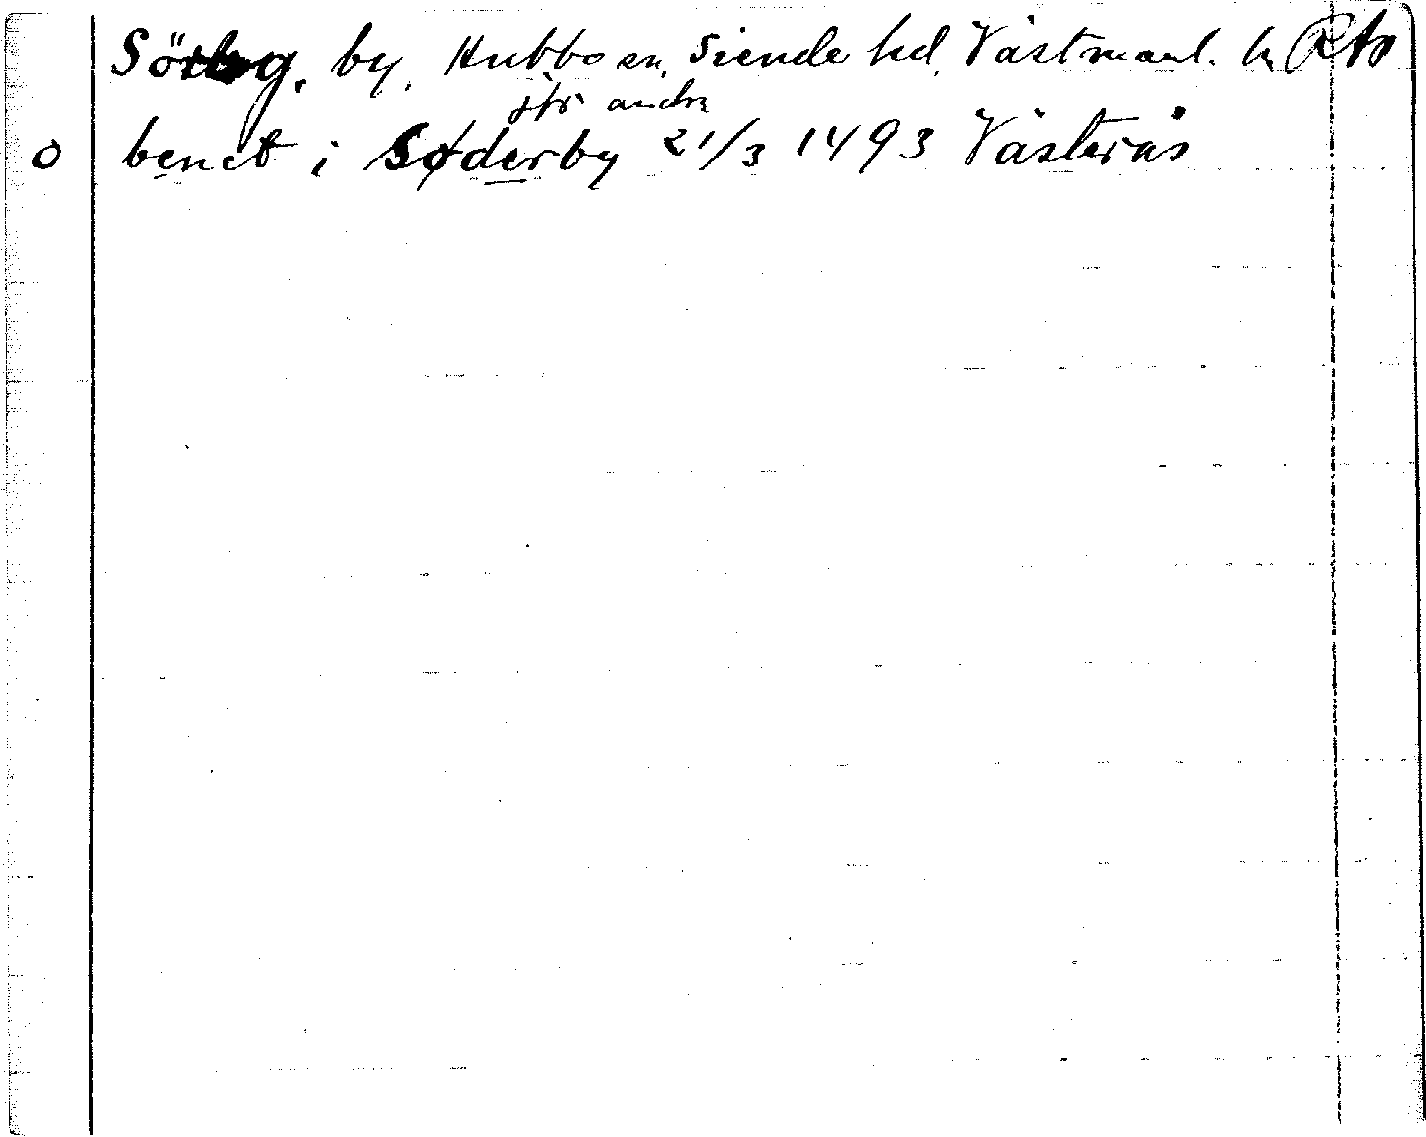 Sörby, by, Hubbo sn, Siende hd, Västmanl. ln Rto
jfr andra
o benet i Søderby 21/3 1493 Västerås